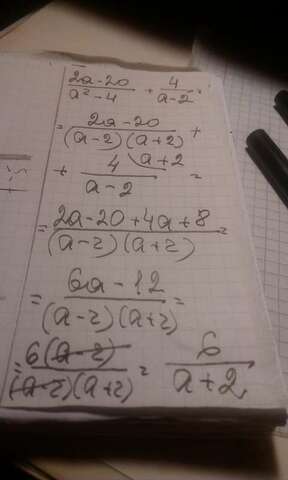 (2a-20)/(a²-4) + 4/(a-2) =
= (2a-20)/((a-2)(a+2)) +
+ 4\a+2/(a-2) =
= (2a-20+4a+8)/((a-2)(a+2)) =
= (6a-12)/((a-2)(a+2)) =
= 6(a-2)/((a-2)(a+2)) = 6/(a+2)